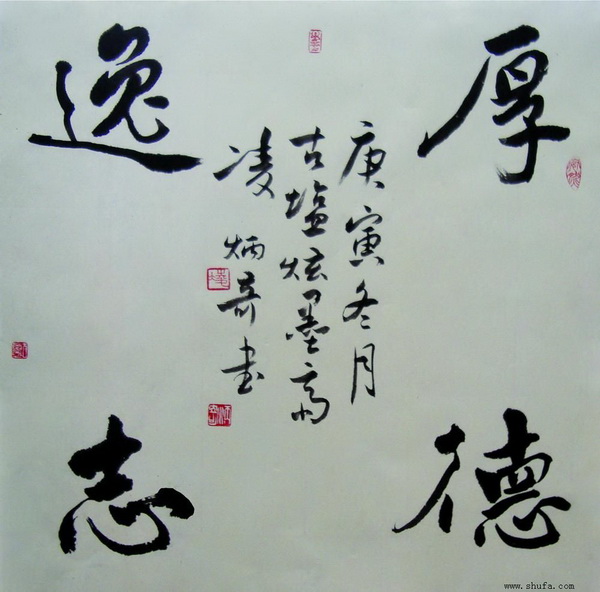 厚德
逸志
庚寅冬月
古塩炫墨斋
凌炳奇书
www.shufa.com